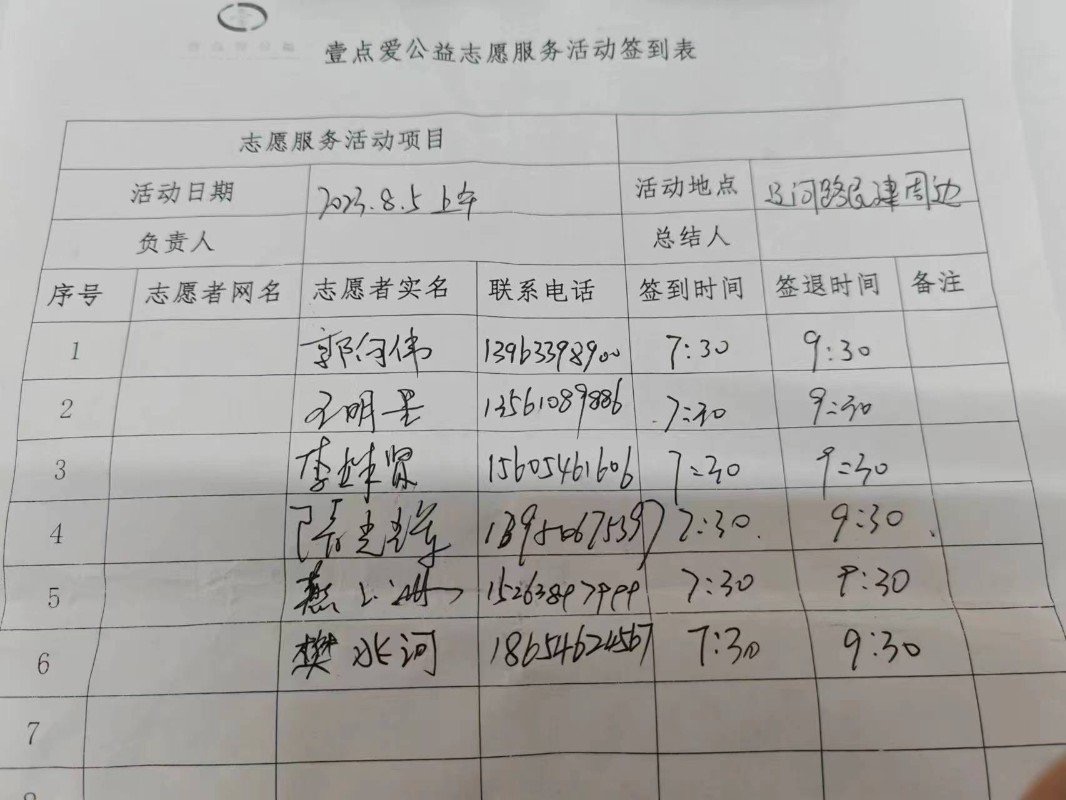 壹点爱公益志愿服务活动签到表
志愿服务活动项目
活动日期 2023.8.5 上午 活动地点 路民建周边
负责人 总结人
序号 志愿者网名 志愿者实名 联系电话 签到时间 签退时间 备注
1 郭向伟 13963398900 7:30 9:30
2 王明星 13561089886 7:30 9:30
3 李 贤 15605461606 7:30 9:30
4 陈光 7:30 9:30
5 燕 7:30 9:30
6 樊水河 18654624567 7:30 9:30
7
8